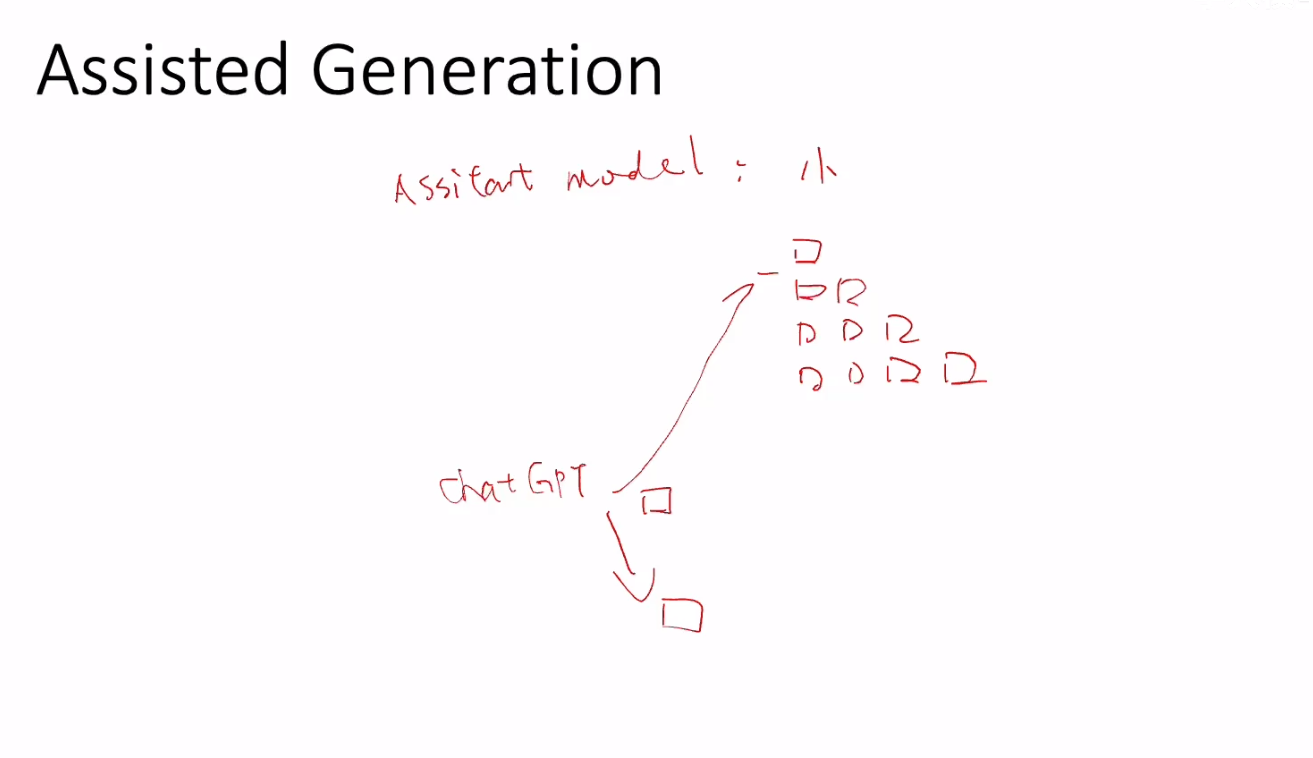 Assisted Generation
Assitant model : 小
chatGPT